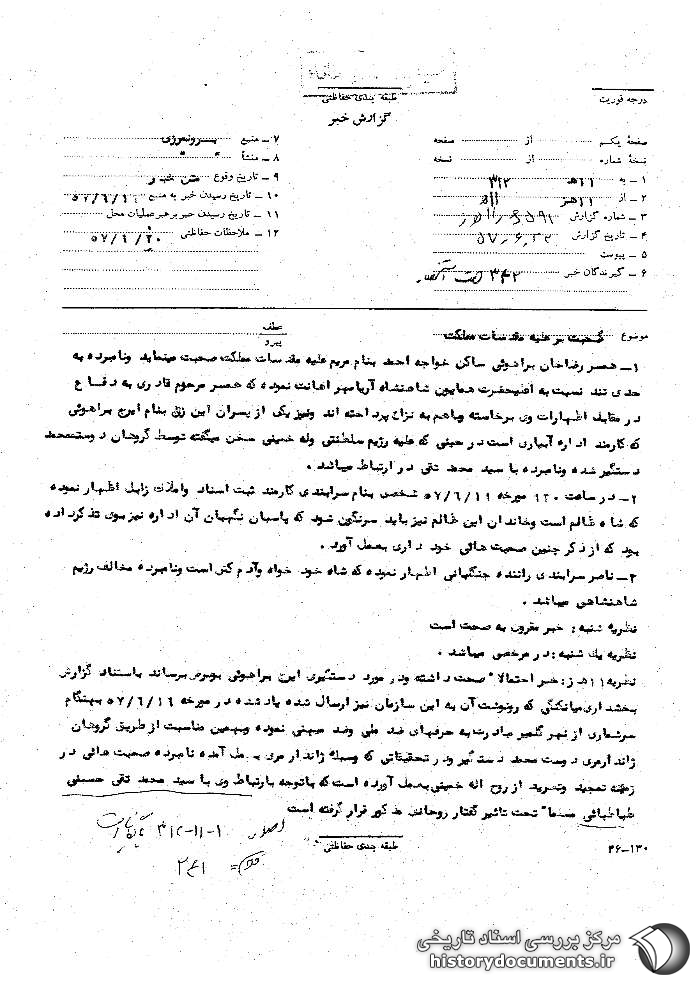 طبقه بندی حفاظتی
درجه فوریت
گزارش خبر
صفحهٔ یکم از صفحه
نسخهٔ شماره از نسخه
۱ـ به ۳۱۲
۲ـ از ۱۱هـ
۳ـ شماره گزارش
۴ـ تاریخ گزارش
۵ـ پیوست
۶ـ گیرندگان خبر
۷ـ منبع
۸ـ منشأ
۹ـ تاریخ وقوع متن خبر
۱۰ـ تاریخ رسیدن خبر به منبع
۱۱ـ تاریخ رسیدن خبر برهبر عملیات محل
۱۲ـ ملاحظات حفاظتی
موضوع صحبت بر علیه مقدسات مملکت
عطف
پیرو
۱ـ همسر رضاخان براهوئی ساکن خواجه احمد بنام مریم علیه مقدسات مملکت صحبت مینماید ونامبرده به
حدی تند نسبت به اعلیحضرت همایون شاهنشاه آریامهر اهانت نموده که همسر مرحوم قادری به دفاع
در مقابل اظهارات وی برخاسته وباهم به نزاع پرداخته اند ونیز یکی از پسران این زن بنام ایرج براهوئی
که کارمند اداره آبیاری است در حینی که علیه رژیم سلطنتی وله خمینی سخن میگفته توسط گروهان دوستمحمد
دستگیر شده ونامبرده با سید محمد تقی در ارتباط میباشد .
۲ـ در ساعت مورخه شخصی بنام سرابندی کارمند ثبت اسناد واملاک زابل اظهار نموده
که شاه ظالم است وخاندان این ظالم نیز باید سرنگون شود که پاسبان نگهبان آن اداره نیز بوی تذکر داده
بود که از ذکر چنین صحبت هائی خود داری بعمل آورد .
۳ـ ناصر سرابندی راننده جنگلبانی اظهار نموده که شاه خود خواه وآدم کش است ونامبرده مخالف رژیم
شاهنشاهی میباشد .
نظریه شنبه : خبر مقرون به صحت است
نظریه یک شنبه : در مرخصی میباشد .
نظریه ۱۱هـ ز : خبر احتمالا" صحت داشته ودر مورد دستگیری ایرج براهوئی بعرض میرساند باستناد گزارش
بخشداری میانکنگی که رونوشت آن به این سازمان نیز ارسال شده یاد شده در مورخه بهنگام
سرشماری از شهر گلمیر مبادرت به حرفهای ضد ملی وضد میهنی نموده وبهمین مناسبت از طریق گروهان
ژاندارمری دوست محمد دستگیر ودر تحقیقاتی که وسیله ژاندارمری بعمل آمده نامبرده صحبت هائی در
زمینه تمجید وتعریف از روح اله خمینی بعمل آورده است که باتوجه بارتباط وی با سید محمد تقی حسینی
طباطبائی مسلما" تحت تاثیر گفتار روحانی مذکور قرار گرفته است
طبقه بندی حفاظتی
۳۶ـ۱۳۰
مرکز بررسی اسناد تاریخی
historydocuments.ir